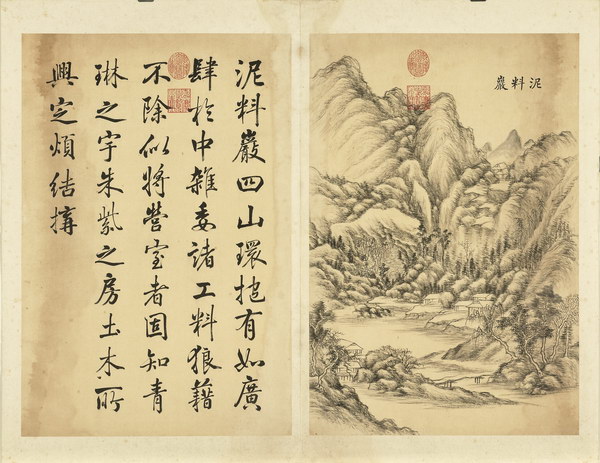 泥料巖
泥料巖四山環抱有如廣
肆扵中雜委諸工料狼藉
不除似將營室者固知青
琳之宇朱紫之房土木所
興定煩結搆